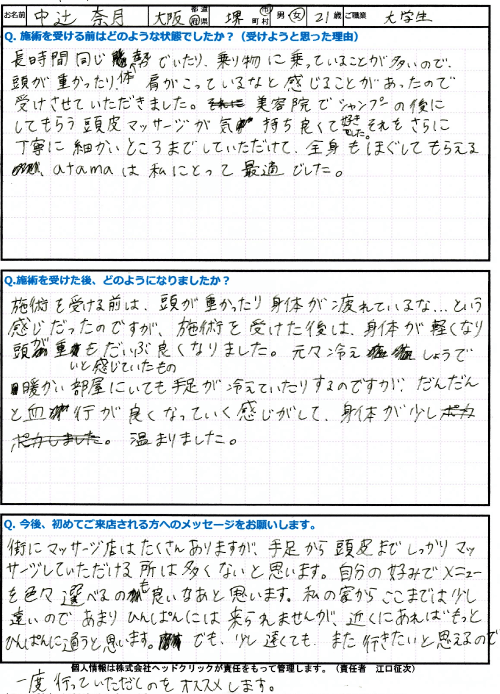 お名前 中辻 奈月 大阪 都道府県 堺 市町村 男・女 21歳 ご職業 大学生
Q. 施術を受ける前はどのような状態でしたか?(受けようと思った理由)
長時間同じ でいたり、乗り物に乗っていることが多いので、
頭が重かったり、体、肩がこっているなと感じることがあったので
受けさせていただきました。美容院でシャンプーの後に
してもらう頭皮マッサージが気持ち良くて好きでした。それをさらに
丁寧に細かいところまでしていただけて、全身もほぐしてもらえる
atamaは私にとって最適でした。
Q.施術を受けた後、どのようになりましたか?
施術を受ける前は、頭が重かったり身体が疲れているな…という
感じだったのですが、施術を受けた後は、身体が軽くなり
頭が重いと感じていたものもだいぶ良くなりました。元々冷えしょうで
暖かい部屋にいても手足が冷えていたりするのですが、だんだん
と血行が良くなっていく感じがして、身体が少しポカ
ポカしました。温まりました。
Q. 今後、初めてご来店される方へのメッセージをお願いします。
街にマッサージ店はたくさんありますが、手足から頭皮までしっかりマッ
サージしていただける所は多くないと思います。自分の好みでメニュー
を色々選べるのも良いなあと思います。私の家からここまでは少し
遠いのであまりひんぱんには来られませんが、近くにあればもっと
ひんぱんに通うと思います。でも、少し遠くても、また行きたいと思えるので
個人情報は株式会社ヘッドクリックが責任をもって管理します。(責任者 江口征次)
一度行っていただくのをオススメします。